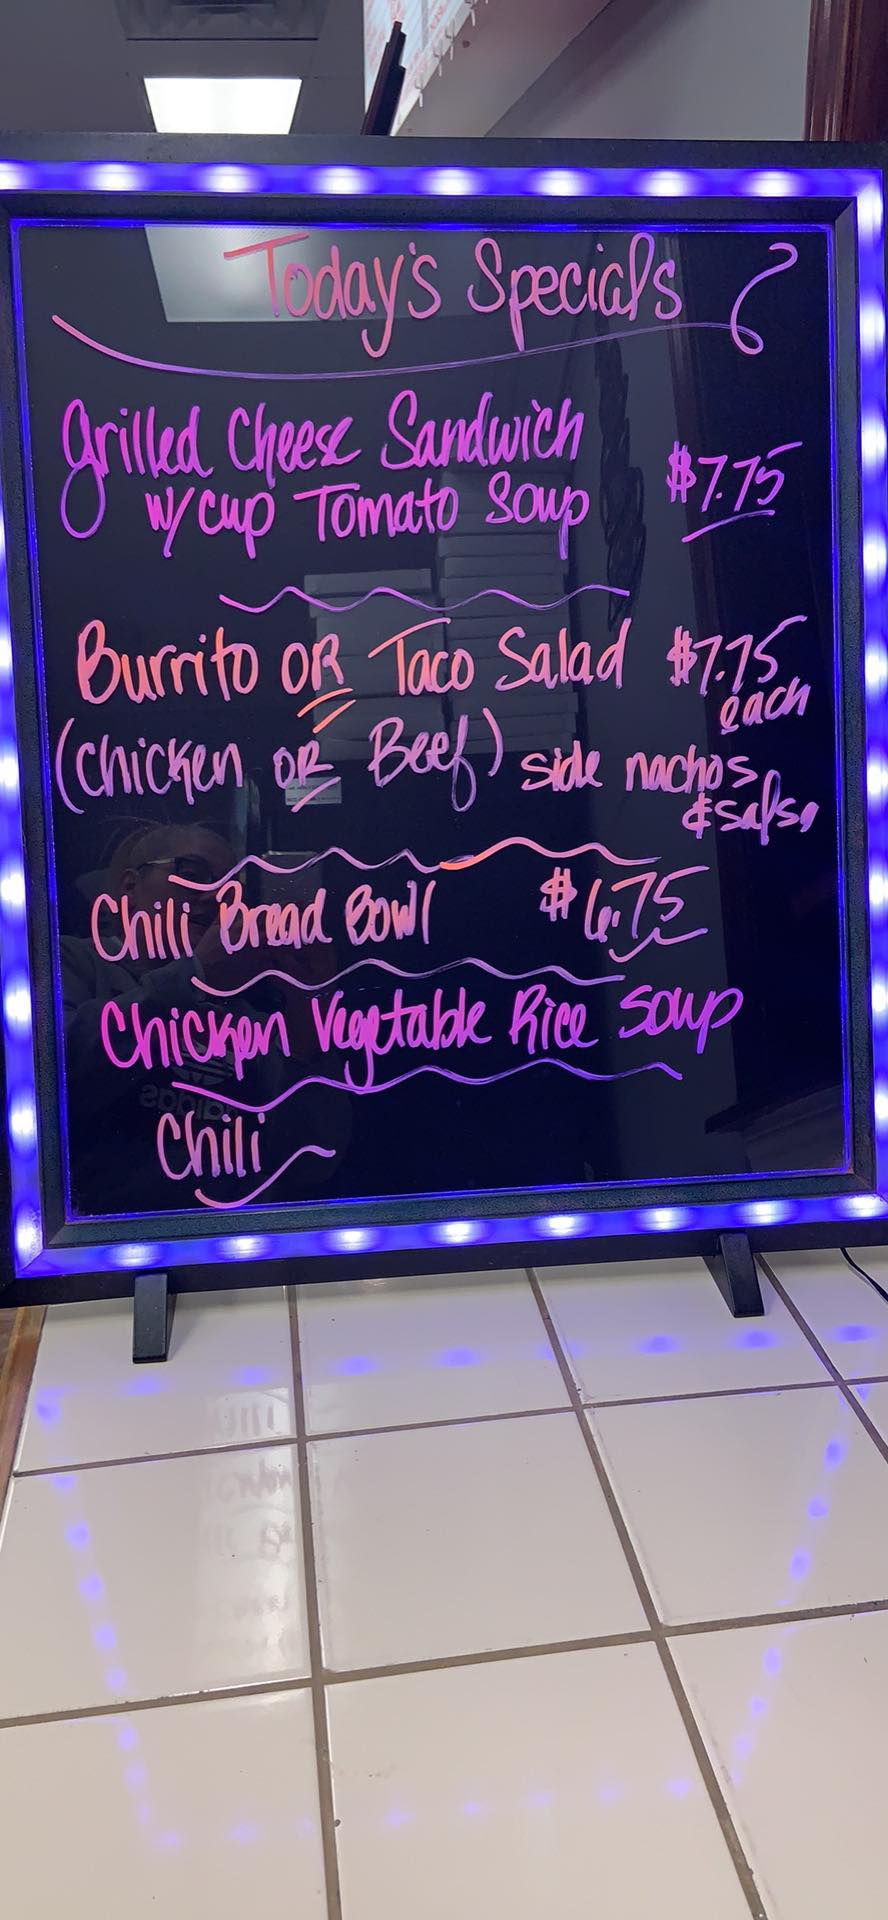 Today's Specials
Grilled Cheese Sandwich
w/cup Tomato Soup $7.75
Burrito OR Taco Salad $7.75
each
(Chicken OR Beef) side nachos
& salsa
Chili Bread Bowl $6.75
Chicken Vegetable Rice Soup
adidas
Chili